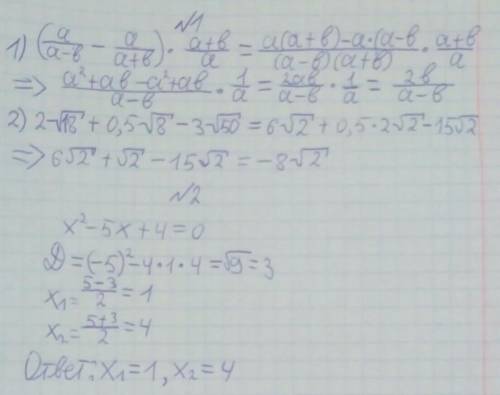 №1
1) (a/(a-в) - a/(a+в)) · (a+в)/a = (a(a+в)-a·(a-в)/((a-в)(a+в)) · (a+в)/a
=> (a²+aв-a²+aв)/(a-в) · 1/a = 2aв/(a-в) · 1/a = 2в/(a-в)
2) 2√18 + 0,5√8 - 3√50 = 6√2 + 0,5·2√2 - 15√2
=> 6√2 + √2 - 15√2 = -8√2
№2
x²-5x+4=0
D=(-5)²-4·1·4=√9=3
x₁=(5-3)/2=1
x₂=(5+3)/2=4
Ответ: x₁=1, x₂=4